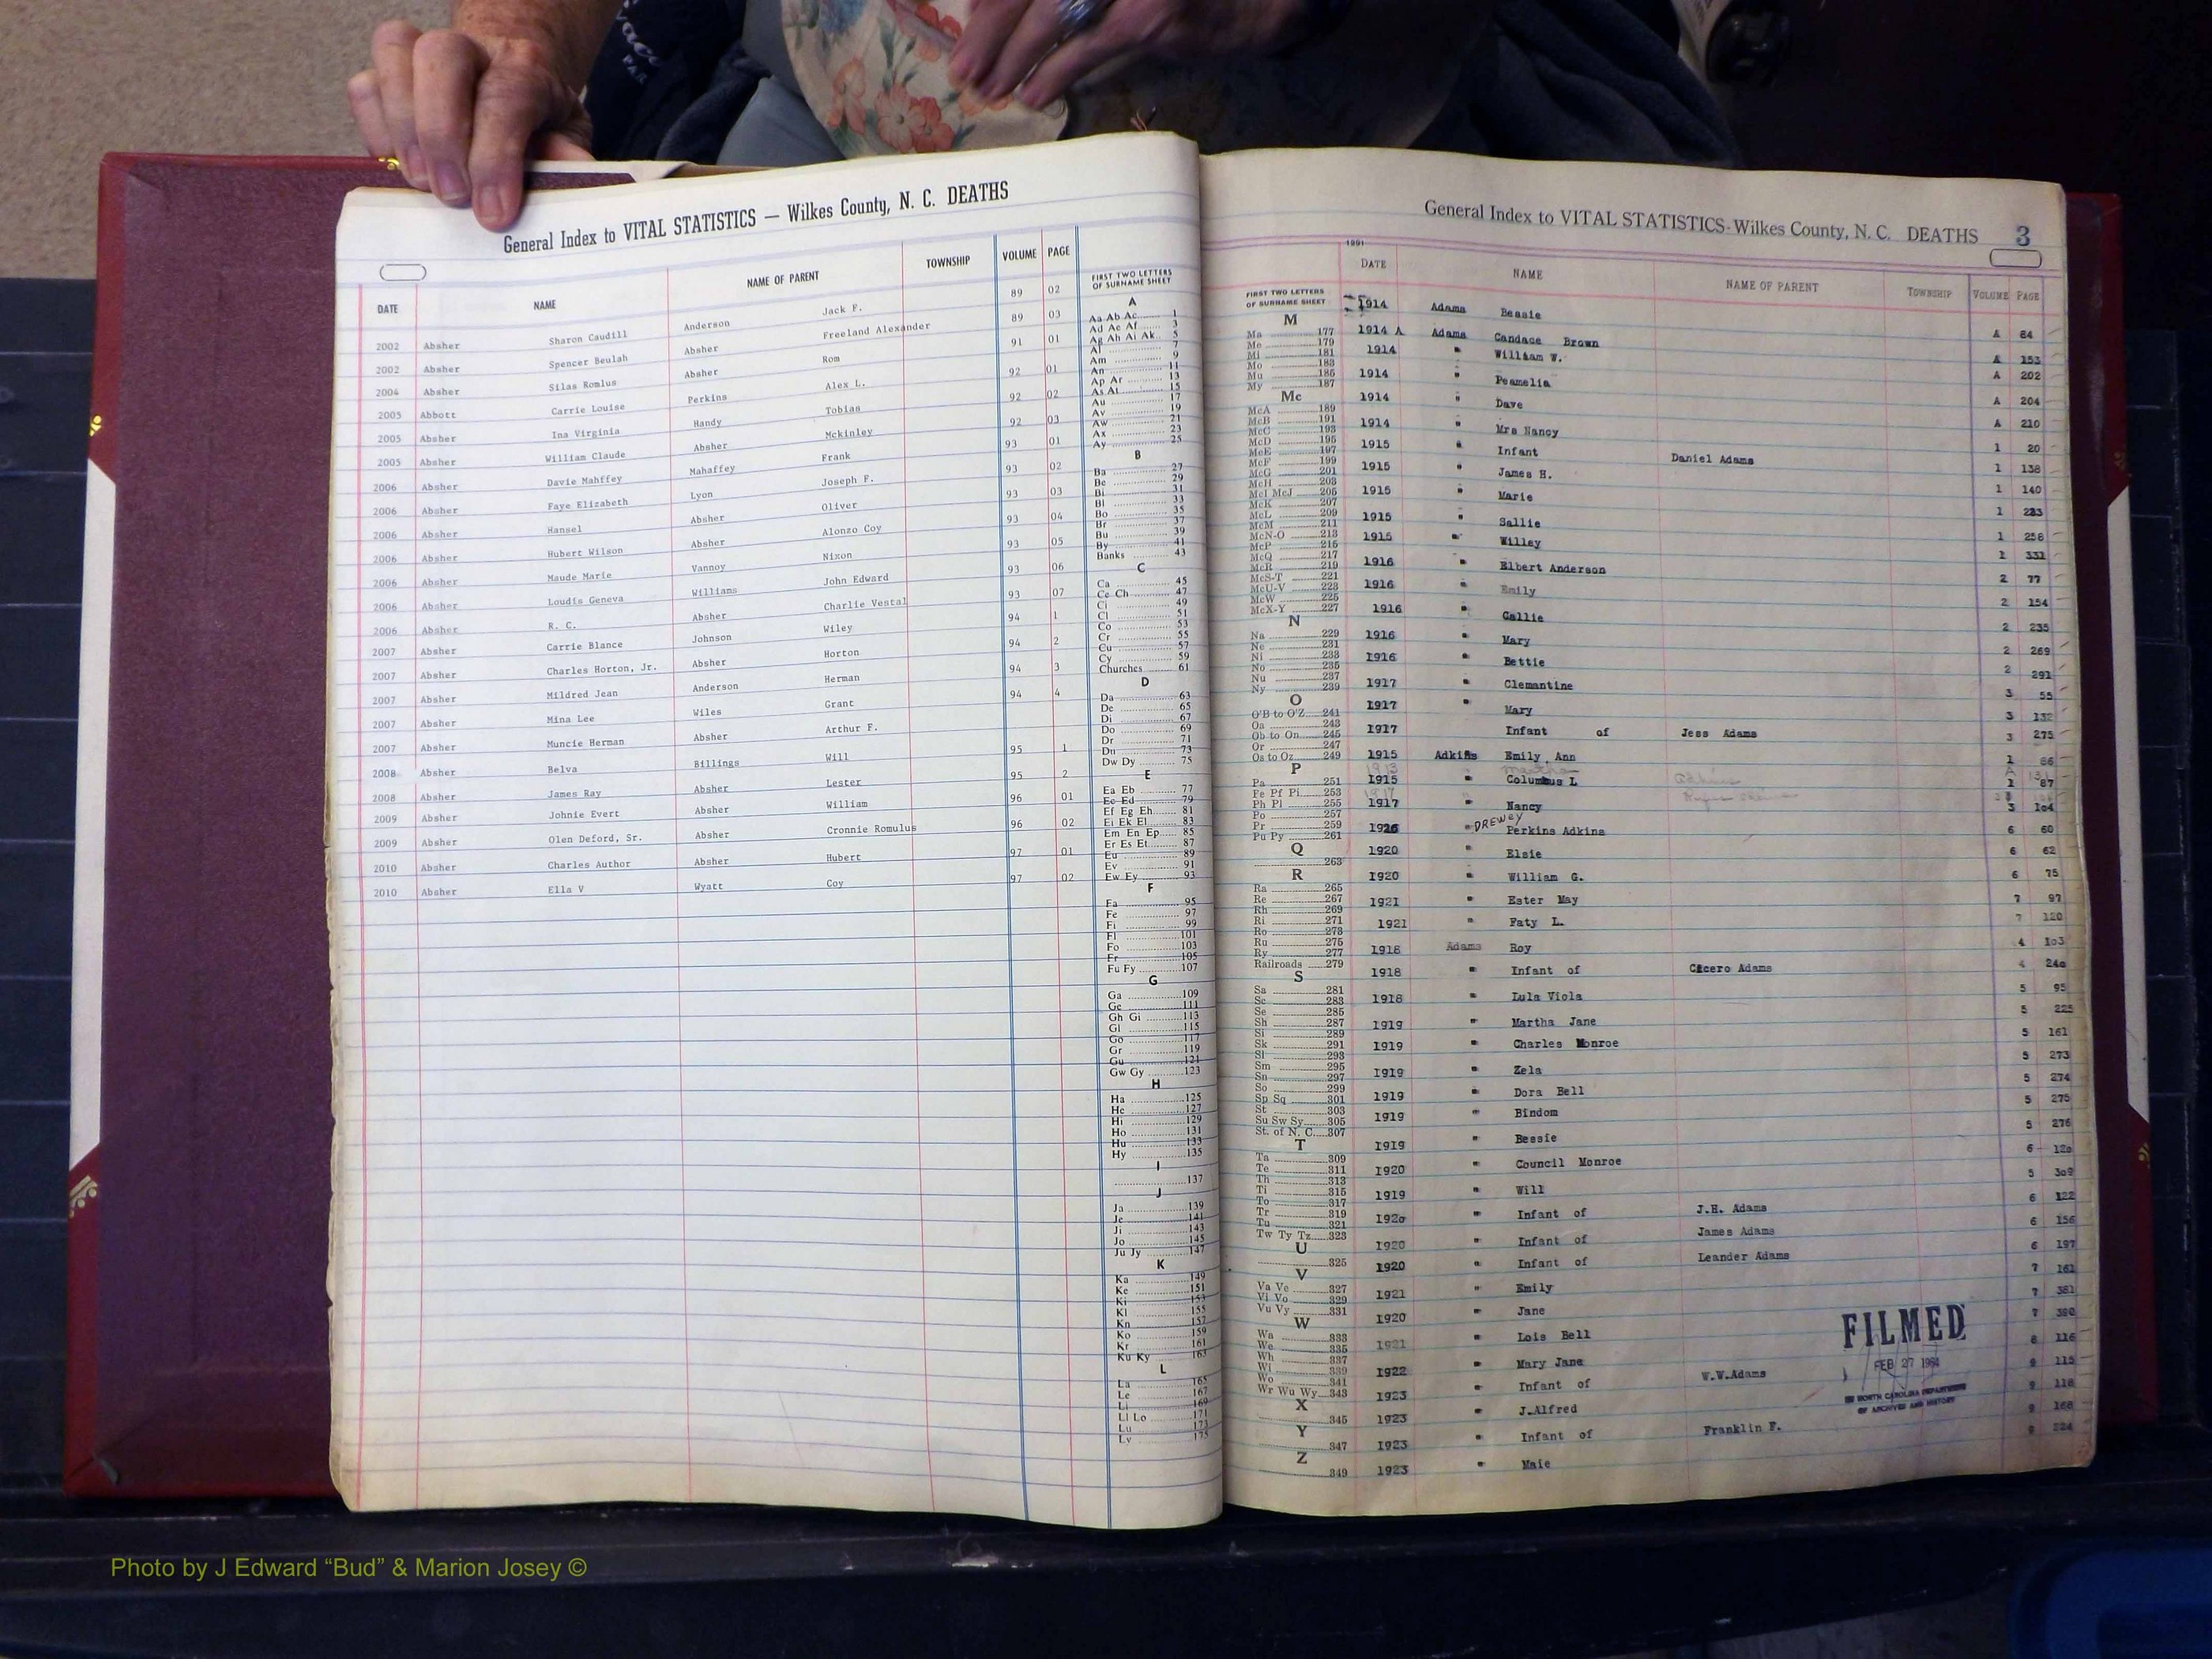 General Index to VITAL STATISTICS — Wilkes County, N. C. DEATHS
DATE NAME NAME OF PARENT TOWNSHIP VOLUME PAGE
2002 Absher Sharon Caudill Anderson Jack F. 89 02
2002 Absher Spencer Beulah Absher Freeland Alexander 89 03
2004 Absher Silas Romlus Absher Rom 91 01
2005 Abbott Carrie Louise Perkins Alex L. 92 01
2005 Absher Ina Virginia Handy Tobias 92 02
2005 Absher William Claude Absher Mckinley 92 03
2006 Absher Davie Mahffey Mahaffey Frank 93 01
2006 Absher Faye Elizabeth Lyon Joseph F. 93 02
2006 Absher Hansel Absher Oliver 93 03
2006 Absher Hubert Wilson Absher Alonzo Coy 93 04
2006 Absher Maude Marie Vannoy Nixon 93 05
2006 Absher Loudis Geneva Williams John Edward 93 06
2006 Absher R. C. Absher Charlie Vestal 93 07
2007 Absher Carrie Blance Johnson Wiley 94 1
2007 Absher Charles Horton, Jr. Absher Horton 94 2
2007 Absher Mildred Jean Anderson Herman 94 3
2007 Absher Mina Lee Wiles Grant 94 4
2007 Absher Muncie Herman Absher Arthur F.
2008 Absher Belva Billings Will 95 1
2008 Absher James Ray Absher Lester 95 2
2009 Absher Johnie Evert Absher William 96 01
2009 Absher Olen Deford, Sr. Absher Cronnie Romulus 96 02
2010 Absher Charles Author Absher Hubert 97 01
2010 Absher Ella V Wyatt Coy 97 02
FIRST TWO LETTERS
OF SURNAME SHEET
A
Aa Ab Ac 1
Ad Ae Af 3
Ag Ah Ai Ak 5
Al 7
Am 9
An 11
Ap Ar 13
As At 15
Au 17
Av 19
Aw 21
Ax 23
Ay 25
B
Ba 27
Be 29
Bi 31
Bl 33
Bo 35
Br 37
Bu 39
By 41
Banks 43
C
Ca 45
Ce Ch 47
Ci 49
Cl 51
Co 53
Cr 55
Cu 57
Cy 59
Churches 61
D
Da 63
De 65
Di 67
Do 69
Dr 71
Du 73
Dw Dy 75
E
Ea Eb 77
Ec Ed 79
Ef Eg Eh 81
Ei Ek El 83
Em En Ep 85
Er Es Et 87
Eu 89
Ev 91
Ew Ey 93
F
Fa 95
Fe 97
Fi 99
Fl 101
Fo 103
Fr 105
Fu Fy 107
G
Ga 109
Ge 111
Gh Gi 113
Gl 115
Go 117
Gr 119
Gu 121
Gw Gy 123
H
Ha 125
He 127
Hi 129
Ho 131
Hu 133
Hy 135
I
137
J
Ja 139
Je 141
Ji 143
Jo 145
Ju Jy 147
K
Ka 149
Ke 151
Ki 153
Kl 155
Kn 157
Ko 159
Kr 161
Ku Ky 163
L
La 165
Le 167
Li 169
Ll Lo 171
Lu 173
Ly 175
General Index to VITAL STATISTICS-Wilkes County, N. C. DEATHS 3
FIRST TWO LETTERS
OF SURNAME SHEET
M
Ma 177
Me 179
Mi 181
Mo 183
Mu 185
My 187
Mc
McA 189
McB 191
McC 193
McD 195
McE 197
McF 199
McG 201
McH 203
McI McJ 205
McK 207
McL 209
McM 211
McN-O 213
McP 215
McQ 217
McR 219
McS-T 221
McU-V 223
McW 225
McX-Y 227
N
Na 229
Ne 231
Ni 233
No 235
Nu 237
Ny 239
O
O'B to O'Z 241
Oa 243
Ob to On 245
Or 247
Os to Oz 249
P
Pa 251
Pe Pf Pi 253
Ph Pl 255
Po 257
Pr 259
Pu Py 261
Q
263
R
Ra 265
Re 267
Rh 269
Ri 271
Ro 273
Ru 275
Ry 277
Railroads 279
S
Sa 281
Sc 283
Se 285
Sh 287
Si 289
Sk 291
Sl 293
Sm 295
Sn 297
So 299
Sp Sq 301
St 303
Su Sw Sy 305
St. of N. C. 307
T
Ta 309
Te 311
Th 313
Ti 315
To 317
Tr 319
Tu 321
Tw Ty Tz 323
U
325
V
Va Ve 327
Vi Vo 329
Vu Vy 331
W
Wa 333
We 335
Wh 337
Wi 339
Wo 341
Wr Wu Wy 343
X
345
Y
347
Z
349
DATE NAME NAME OF PARENT TOWNSHIP VOLUME PAGE
1914 Adams Bessie A 84
1914 A Adams Candace Brown A 153
1914 " William W. A 202
1914 " Peamelia A 204
1914 " Dave A 210
1914 " Mrs Nancy 1 20
1915 " Infant Daniel Adams 1 138
1915 " James H. 1 140
1915 " Marie 1 223
1915 " Sallie 1 258
1915 " Willey 1 331
1916 " Elbert Anderson 2 77
1916 " Emily 2 154
1916 " Callie 2 235
1916 " Mary 2 269
1916 " Bettie 2 291
1917 " Clemantine 3 55
1917 " Mary 3 132
1917 Infant of Jess Adams 3 275
1915 Adkins Emily Ann 1 86
1913 " Martha A
1915 " Columbus L 1 87
1917 " Nancy 3 104
1926 " DREWEY Perkins Adkins 6 60
1920 " Elsie 6 62
1920 " William G. 6 75
1921 " Ester May 7 97
1921 " Faty L. 7 120
1918 Adams Roy 4 103
1918 " Infant of Cicero Adams 4 240
1918 " Lula Viola 5 95
1919 " Martha Jane 5 225
1919 " Charles Monroe 5 161
1919 " Zela 5 273
1919 " Dora Bell 5 274
1919 " Bindom 5 275
1919 " Bessie 5 276
1920 " Council Monroe 6 120
1919 " Will 5 309
1920 " Infant of J.H. Adams 6 122
1920 " Infant of James Adams 6 156
1920 " Infant of Leander Adams 6 197
1921 " Emily 7 161
1920 " Jane 7 381
1921 " Lois Bell 7 390
1922 " Mary Jane 8 116
1923 " Infant of W.W.Adams 9 115
1923 " J.Alfred 9 118
1923 " Infant of Franklin F. 9 168
1923 " Maie 9 224
FILMED
FEB 27 1964
NORTH CAROLINA DEPARTMENT
OF ARCHIVES AND HISTORY
Photo by J Edward “Bud” & Marion Josey ©